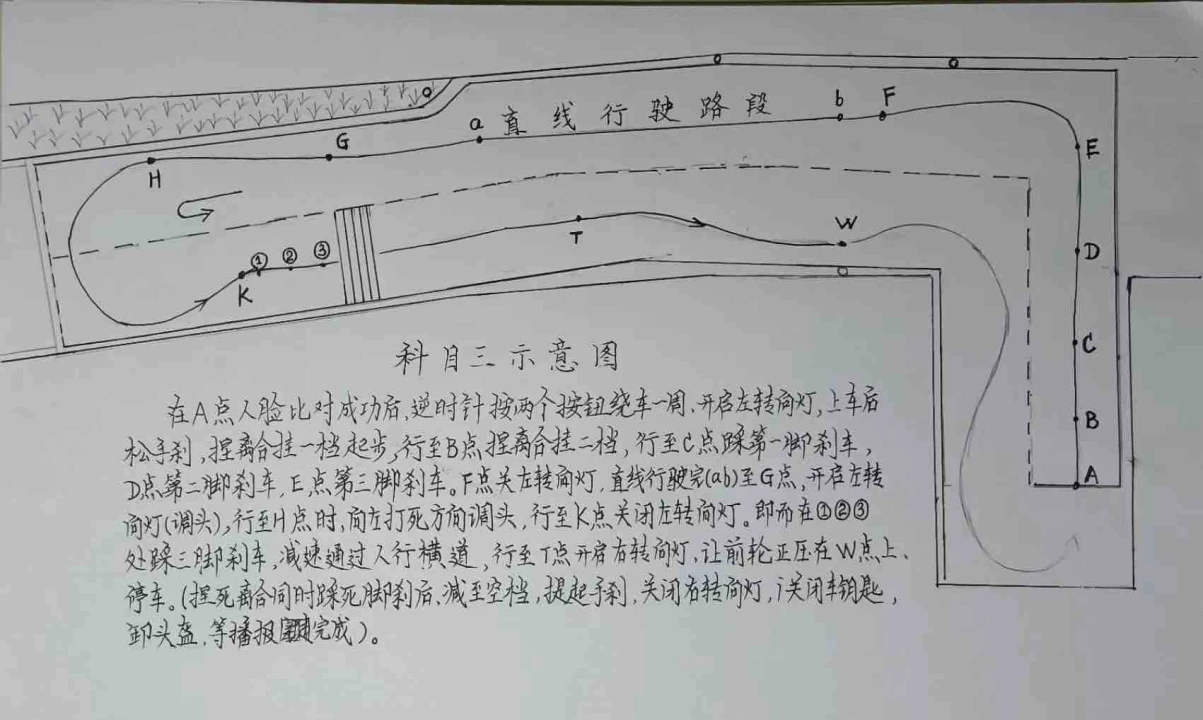 a
直线行驶路段
b
F
G
H
E
T
W
D
① ② ③
K
C
B
A
科目三示意图
在A点人脸比对成功后,逆时针按两个按钮绕车一周、开启左转向灯,上车后
松手刹,捏离合挂一档起步,行至B点捏离合挂二档,行至C点踩第一脚刹车,
D点第二脚刹车,E点第三脚刹车。F点关左转向灯,直线行驶完(ab)至G点,开启左转
向灯(调头),行至H点时,向左打死方向调头,行至K点关闭左转向灯。即而在①②③
处踩三脚刹车,减速通过人行横道,行至T点开启右转向灯,让前轮正压在W点上、
停车。(捏死离合同时踩死脚刹后、减至空档,提起手刹,关闭右转向灯,关闭车钥匙,
卸头盔,等播报完成)。